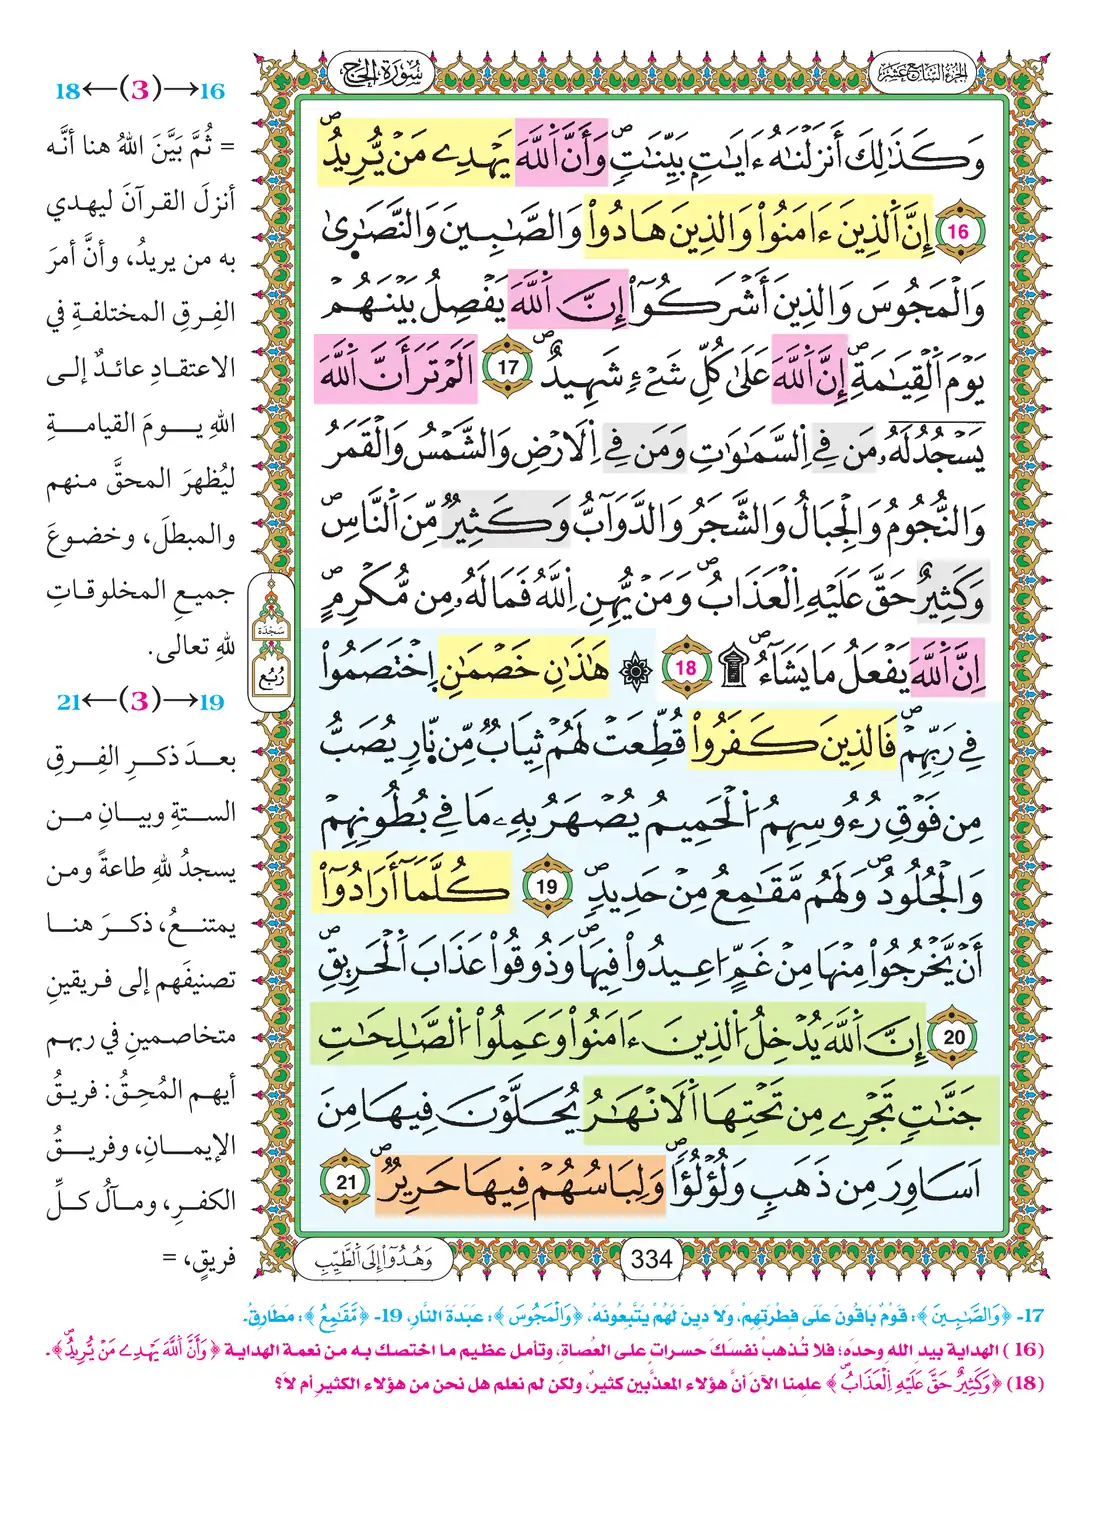 سُورَةُ الحَجِّ
الجُزْءُ السَّابِعَ عَشَرَ
وَكَذَٰلِكَ أَنزَلْنَٰهُ ءَايَٰتٍۢ بَيِّنَٰتٍۖ وَأَنَّ اَ۬للَّهَ يَهْدِے مَنْ يُّرِيدُۖ
16 إِنَّ اَ۬لذِينَ ءَامَنُواْ وَالذِينَ هَادُواْ وَالصَّٰبِينَ وَالنَّصَٰر۪ىٰ
وَالْمَجُوسَ وَالذِينَ أَشْرَكُوٓاْ إِنَّ اَ۬للَّهَ يَفْصِلُ بَيْنَهُمْ
يَوْمَ اَ۬لْقِيَٰمَةِۖ إِنَّ اَ۬للَّهَ عَلَىٰ كُلِّ شَےْءٖ شَهِيدٌۖ 17 اَلَمْ تَرَ أَنَّ اَ۬للَّهَ
يَسْجُدُ لَهُۥ مَن فِے اِ۬لسَّمَٰوَٰتِ وَمَن فِے اِ۬لَارْضِ وَالشَّمْسُ وَالْقَمَرُ
وَالنُّجُومُ وَالْجِبَالُ وَالشَّجَرُ وَالدَّوَآبُّ وَكَثِيرٌ مِّنَ اَ۬لنَّاسِۖ
وَكَثِيرٌ حَقَّ عَلَيْهِ اِ۬لْعَذَابُۖ وَمَنْ يُّهِنِ اِ۬للَّهُ فَمَا لَهُۥ مِن مُّكْرِمٍۖ
اِنَّ اَ۬للَّهَ يَفْعَلُ مَا يَشَآءُۖ ۩ 18 ۞ هَٰذَٰنِ خَصْمَٰنِ اِ۪خْتَصَمُواْ
فِے رَبِّهِمْۖ فَالذِينَ كَفَرُواْ قُطِّعَتْ لَهُمْ ثِيَابٌ مِّن نّ۪ارٖ يُصَبُّ
مِن فَوْقِ رُءُوسِهِمُ اُ۬لْحَمِيمُ يُصْهَرُ بِهِۦ مَا فِے بُطُونِهِمْ
وَالْجُلُودُۖ وَلَهُم مَّقَٰمِعُ مِنْ حَدِيدٖۖ 19 كُلَّمَآ أَرَادُوٓاْ
أَنْ يَّخْرُجُواْ مِنْهَا مِنْ غَمٍّ ا۟عِيدُواْ فِيهَاۖ وَذُوقُواْ عَذَابَ اَ۬لْحَرِيقِۖ
20 إِنَّ اَ۬للَّهَ يُدْخِلُ اُ۬لذِينَ ءَامَنُواْ وَعَمِلُواْ اُ۬لصَّٰلِحَٰتِ
جَنَّٰتٖ تَجْرِے مِن تَحْتِهَا اَ۬لَانْهَٰرُ يُحَلَّوْنَ فِيهَا مِنَ
اَسَاوِرَ مِن ذَهَبٖ وَلُؤْلُؤاٗۖ وَلِبَاسُهُمْ فِيهَا حَرِيرٌۖ 21
سَجْدَة
رُبُع
وَهُدُوٓاْ إِلَى اَ۬لطَّيِّبِ
334
16→(3)←18
= ثُمَّ بَيَّنَ اللهُ هنا أنَّه
أنزلَ القرآنَ ليهدي
به من يريدُ، وأنَّ أمرَ
الفِرقِ المختلفةِ في
الاعتقادِ عائدٌ إلى
اللهِ يومَ القيامةِ
ليُظهرَ المحقَّ منهم
والمبطلَ، وخضوعَ
جميعِ المخلوقاتِ
للهِ تعالى.
19→(3)←21
بعدَ ذكرِ الفِرقِ
الستةِ وبيانِ من
يسجدُ للهِ طاعةً ومن
يمتنعُ، ذكرَ هنا
تصنيفَهم إلى فريقينِ
متخاصمينِ في ربهم
أيهم المُحِقُّ: فريقُ
الإيمانِ، وفريقُ
الكفرِ، ومآلُ كلِّ
فريقٍ، =
17- ﴿وَالصَّٰبِينَ﴾: قَوْمٌ بَاقُونَ عَلَى فِطْرَتِهِمْ، وَلاَ دِينَ لَهُمْ يَتَّبِعُونَهُ، ﴿وَالْمَجُوسَ﴾: عَبَدَةَ النَّارِ، 19- ﴿مَّقَٰمِعُ﴾: مَطَارِقُ.
(16) الهداية بيدِ اللهِ وحدَه؛ فلا تُذهبْ نفسَكَ حسراتٍ على العصاةِ، وتأمل عظيم ما اختصك به من نعمة الهداية ﴿وَأَنَّ اَ۬للَّهَ يَهْدِے مَنْ يُّرِيدُۖ﴾.
(18) ﴿وَكَثِيرٌ حَقَّ عَلَيْهِ اِ۬لْعَذَابُۖ﴾ علِمنا الآنَ أنَّ هؤلاء المعذَّبين كثيرٌ، ولكن لم نعلم هل نحن من هؤلاء الكثيرِ أم لا؟